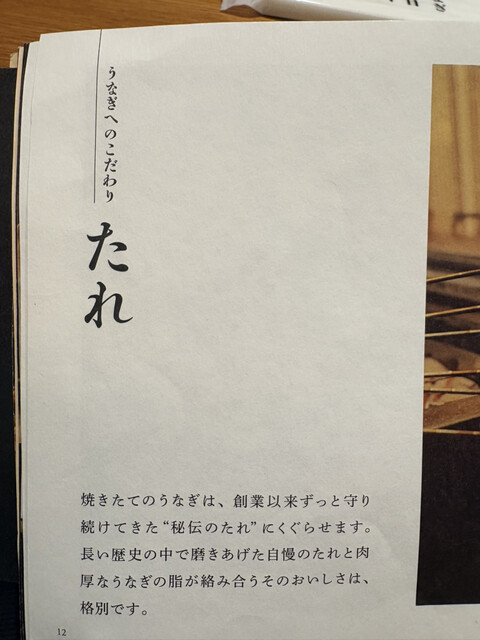 うなぎへのこだわり
たれ
焼きたてのうなぎは、創業以来ずっと守り
続けてきた“秘伝のたれ”にくぐらせます。
長い歴史の中で磨きあげた自慢のたれと肉
厚なうなぎの脂が絡み合うそのおいしさは、
格別です。
12